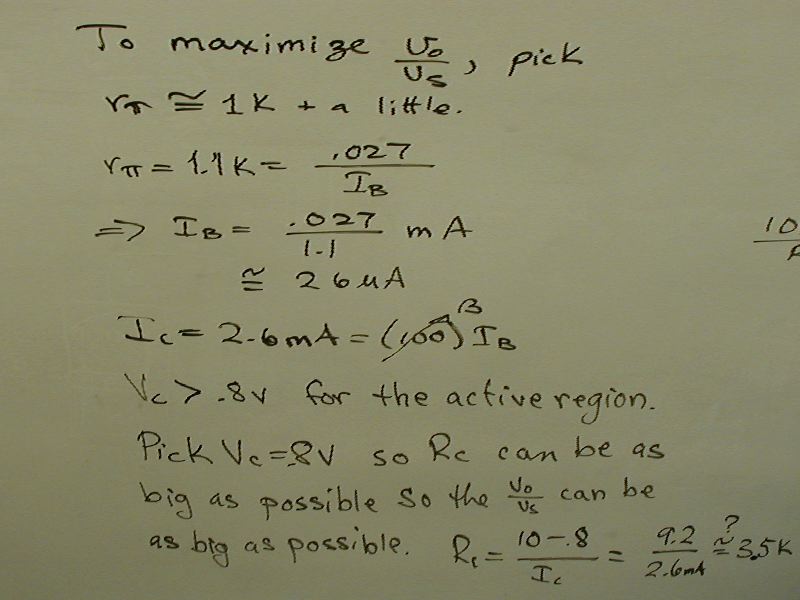 To maximize Vo/Vs, pick
rπ ≅ 1K + a little.
rπ = 1.1K = .027/I_B
=> I_B = .027/1.1 mA
≅ 26 µA
I_C = 2.6mA = (100) β I_B
V_C > .8V for the active region.
Pick V_C = .8V so R_C can be as
big as possible so the Vo/Vs can be
as big as possible. R_C = 10-.8/I_C = 9.2/2.6mA ≅? 3.5K
10